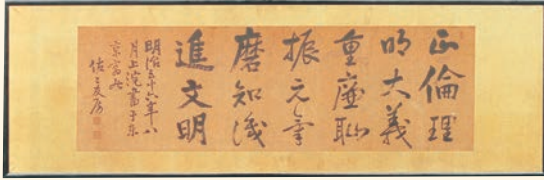 正倫理
明大義
重廉耻
振元氣
磨知識
進文明
明治三十六年八
月上浣書于東
京寓
佐々友房